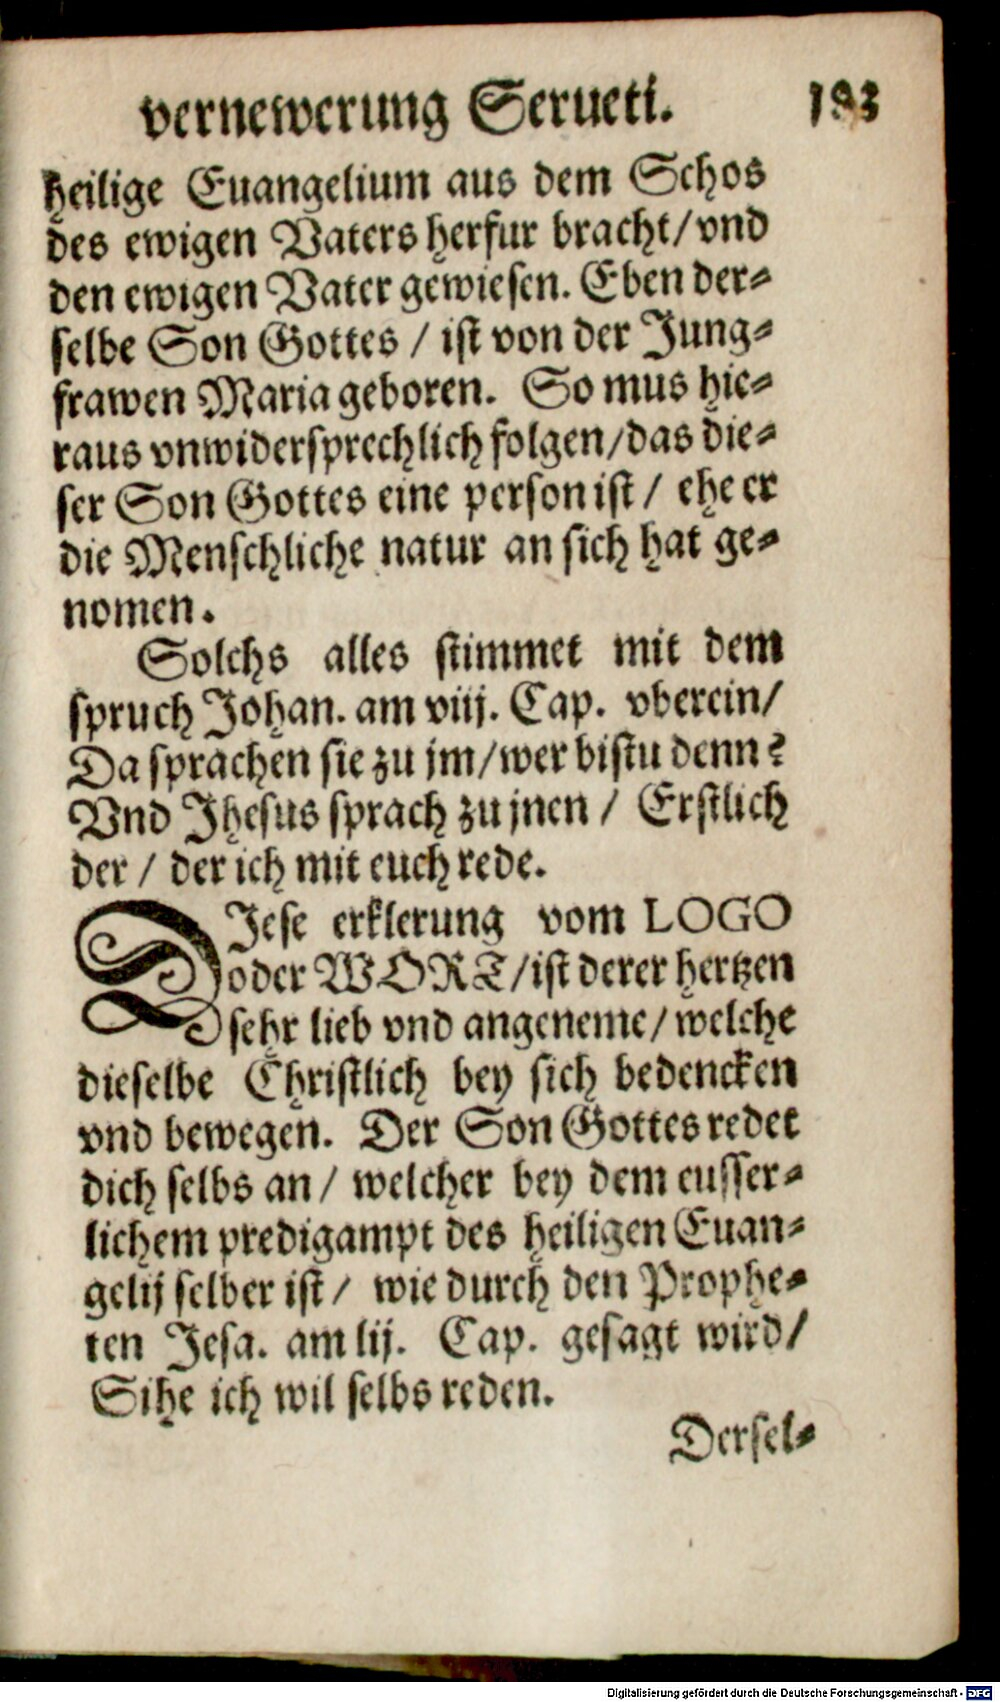 vernewerung Serueti. 193
heilige Euangelium aus dem Schos
des ewigen Vaters herfur bracht/vnd
den ewigen Vater gewiesen. Eben der⸗
selbe Son Gottes / ist von der Jung⸗
frawen Maria geboren. So mus hie⸗
raus vnwidersprechlich folgen/das die⸗
ser Son Gottes eine person ist / ehe er
die Menschliche natur an sich hat ge⸗
nomen.
Solchs alles stimmet mit dem
spruch Johan. am viij. Cap. vberein/
Da sprachen sie zu jm/wer bistu denn?
Vnd Jhesus sprach zu jnen / Erstlich
der / der ich mit euch rede.
DJese erklerung vom LOGO
oder WORT/ist derer hertzen
sehr lieb vnd angeneme/welche
dieselbe Christlich bey sich bedencken
vnd bewegen. Der Son Gottes redet
dich selbs an/ welcher bey dem eusser⸗
lichem predigampt des heiligen Euan⸗
gelij selber ist/ wie durch den Prophe⸗
ten Jesa. am lij. Cap. gesagt wird/
Sihe ich wil selbs reden.
Dersel⸗
Digitalisierung gefördert durch die Deutsche Forschungsgemeinschaft - DFG